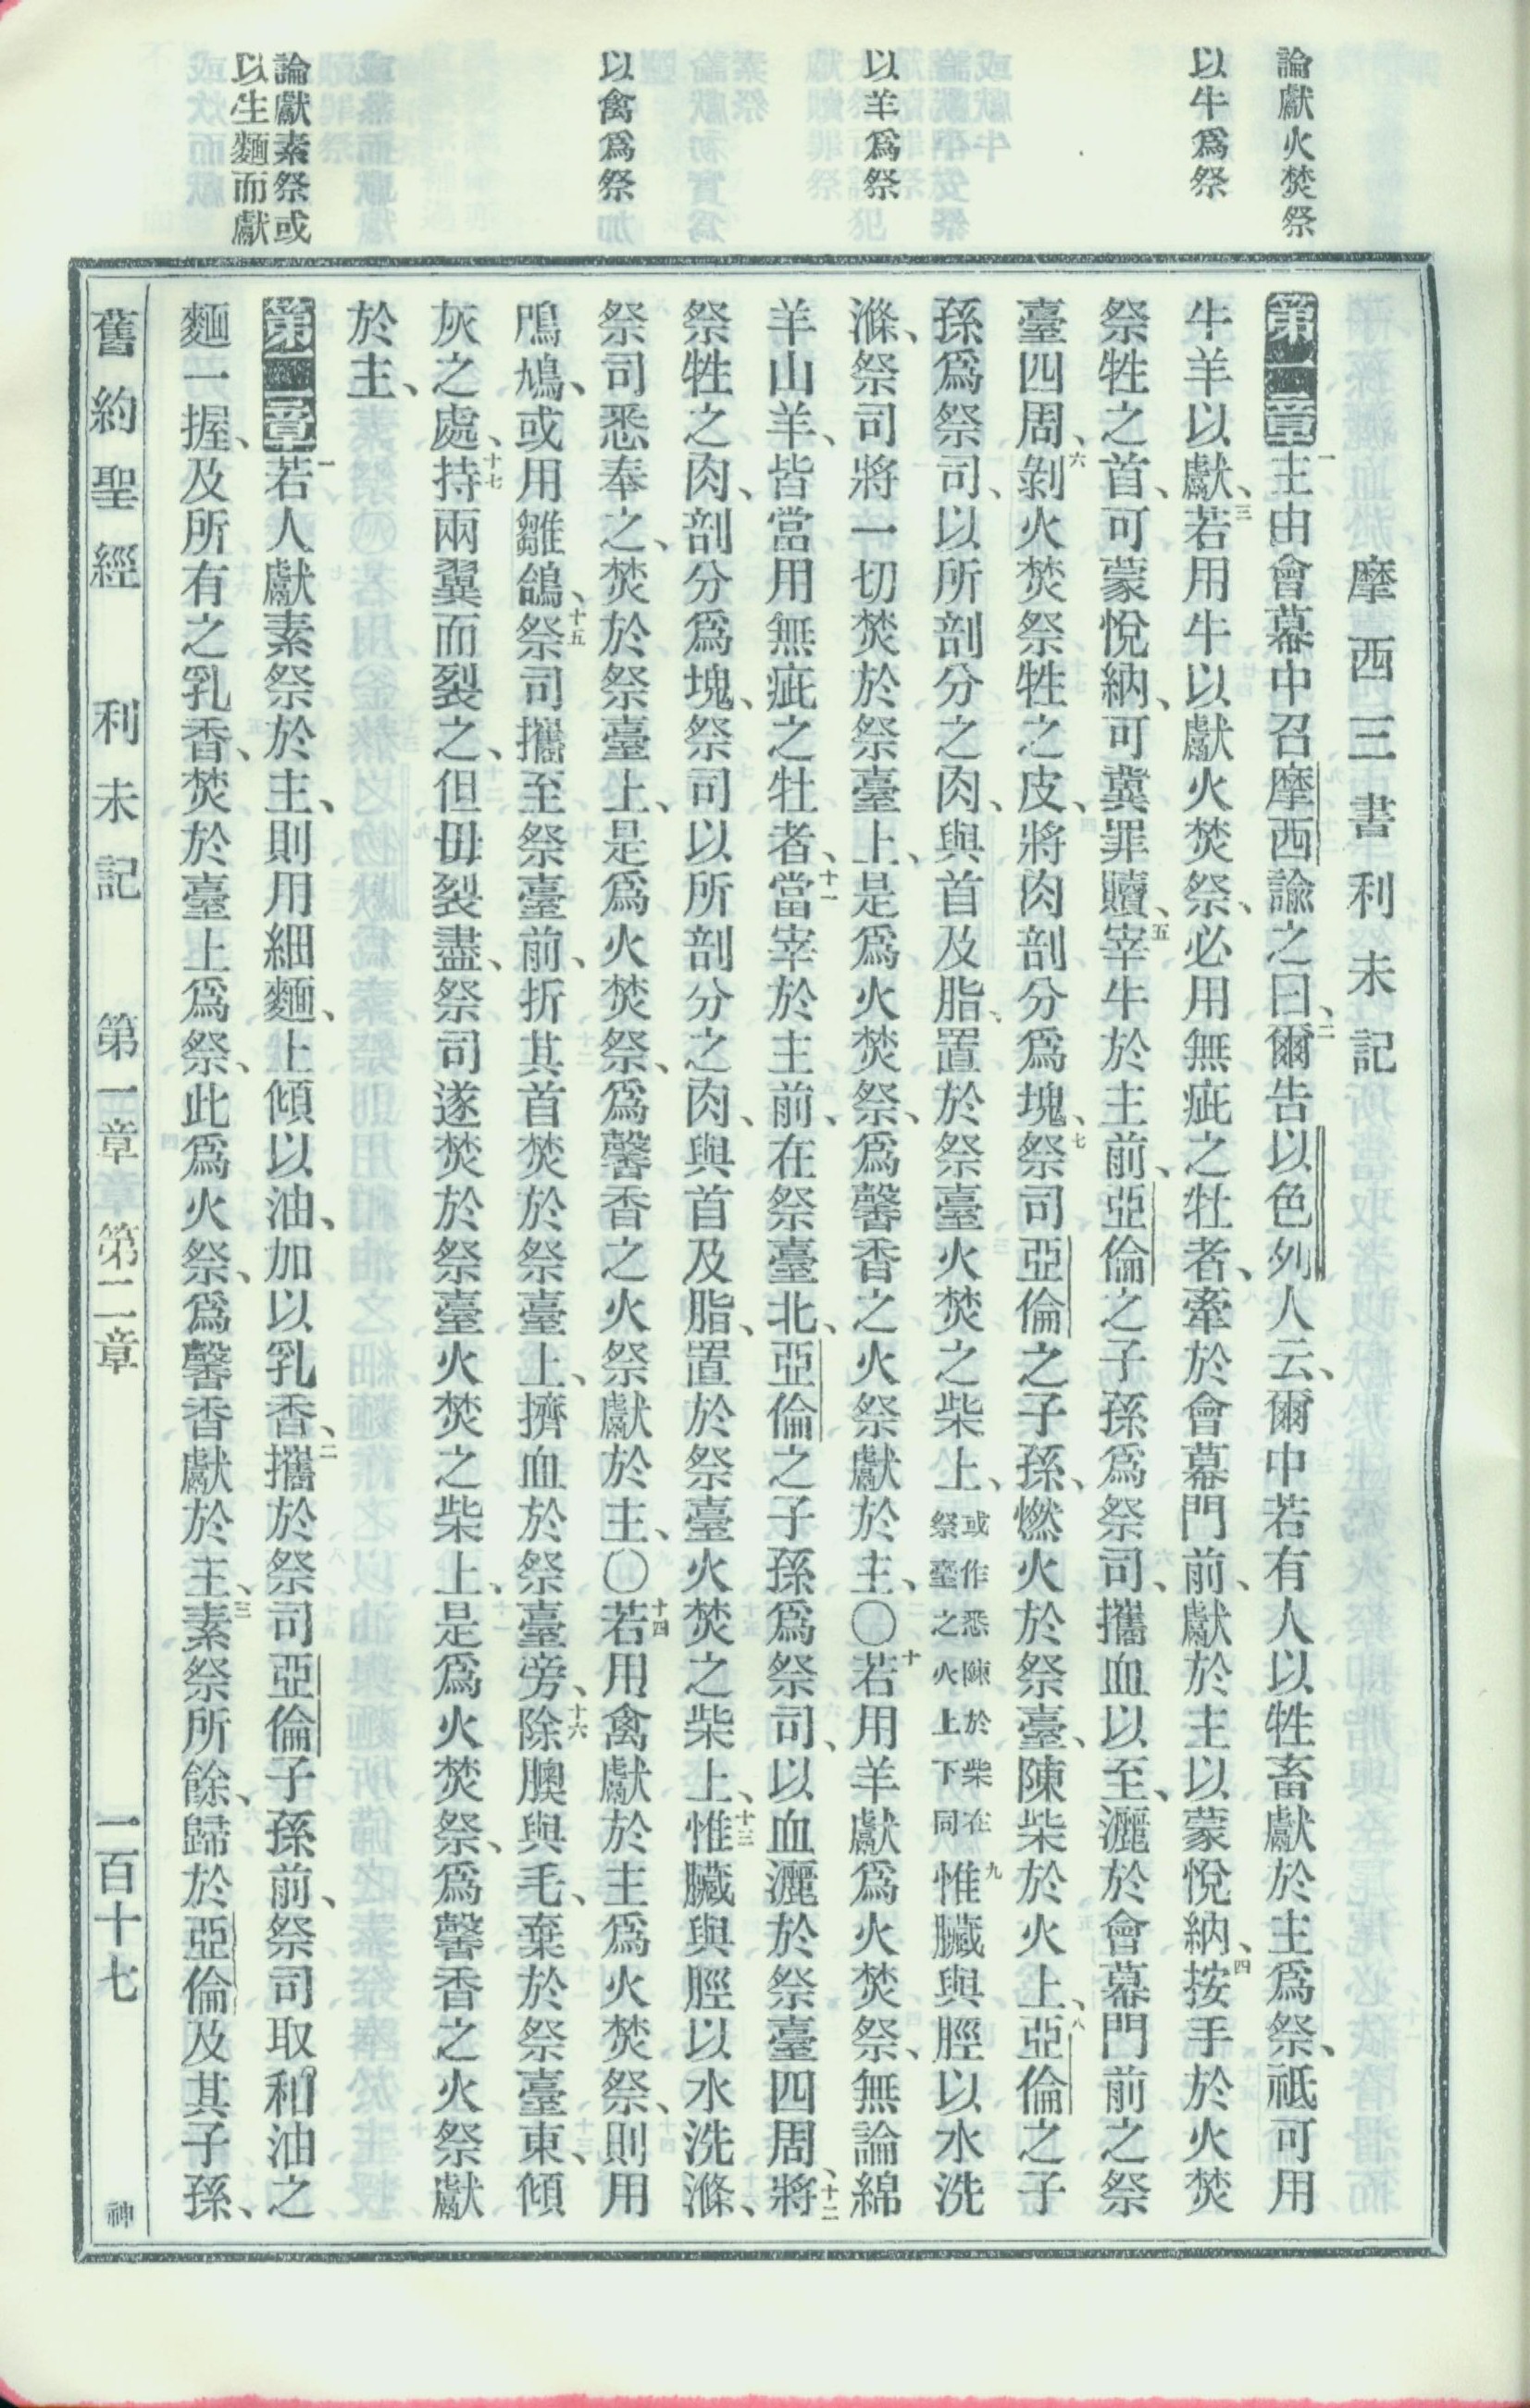 論獻火焚祭
以牛爲祭
以羊爲祭
以禽爲祭
論獻素祭或
以生麵而獻
摩西三書利未記
第一章一主由會幕中召摩西諭之曰、二爾告以色列人云、爾中若有人以牲畜獻於主爲祭、祇可用
牛羊以獻、三若用牛以獻火焚祭、必用無疵之牡者、牽於會幕門前、獻於主以蒙悅納、四按手於火焚
祭牲之首、可蒙悅納、可冀罪贖、五宰牛於主前、亞倫之子孫爲祭司、攜血以至、灑於會幕門前之祭
臺四周、六剝火焚祭牲之皮、將肉剖分爲塊、七祭司亞倫之子孫、燃火於祭臺、陳柴於火上、八亞倫之子
孫爲祭司、以所剖分之肉、與首及脂、置於祭臺火焚之柴上、或作悉陳於柴在祭臺之火上下同九惟臟與脛以水洗
滌、祭司將一切焚於祭臺上、是爲火焚祭、爲馨香之火祭獻於主、〇十若用羊獻爲火焚祭、無論綿
羊山羊、皆當用無疵之牡者、十一當宰於主前、在祭臺北、亞倫之子孫爲祭司、以血灑於祭臺四周、十二將
祭牲之肉、剖分爲塊、祭司以所剖分之肉、與首及脂、置於祭臺火焚之柴上、十三惟臟與脛以水洗滌、
祭司悉奉之、焚於祭臺上、是爲火焚祭、爲馨香之火祭獻於主、〇十四若用禽獻於主爲火焚祭、則用
鳲鳩、或用雛鴿、十五祭司攜至祭臺前、折其首焚於祭臺上、擠血於祭臺旁、十六除膆與毛、棄於祭臺東、傾
灰之處、十七持兩翼而裂之、但毋裂盡、祭司遂焚於祭臺火焚之柴上、是爲火焚祭、爲馨香之火祭獻
於主、
第二章一若人獻素祭於主、則用細麵、上傾以油、加以乳香、二攜於祭司亞倫子孫前、祭司取和油之
麵一握、及所有之乳香、焚於臺上爲祭、此爲火祭、爲馨香獻於主、三素祭所餘、歸於亞倫及其子孫、
舊約聖經 利未記 第一章 第二章 一百十七 神